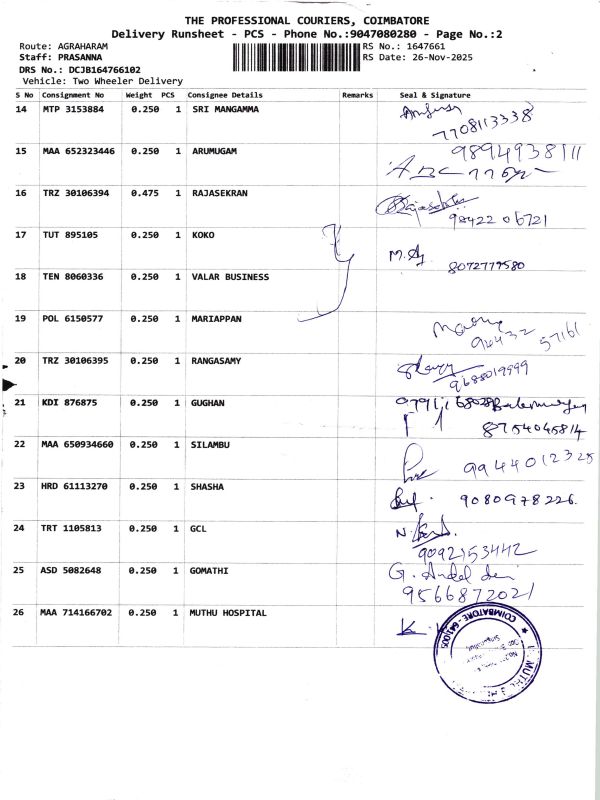 THE PROFESSIONAL COURIERS, COIMBATORE
Delivery Runsheet - PCS - Phone No.:9047080280 - Page No.:2
Route: AGRAHARAM
RS No.: 1647661
Staff: PRASANNA
RS Date: 26-Nov-2025
DRS No.: DCJB164766102
Vehicle: Two Wheeler Delivery
S No Consignment No Weight PCS Consignee Details Remarks Seal & Signature
14 MTP 3153884 0.250 1 SRI MANGAMMA
7708113338
15 MAA 652323446 0.250 1 ARUMUGAM 9894938111
16 TRZ 30106394 0.475 1 RAJASEKRAN
98422 06721
17 TUT 895105 0.250 1 KOKO
8072779580
18 TEN 8060336 0.250 1 VALAR BUSINESS
19 POL 6150577 0.250 1 MARIAPPAN
90432 57161
20 TRZ 30106395 0.250 1 RANGASAMY
9688019999
21 KDI 876875 0.250 1 GUGHAN
8754045814
22 MAA 650934660 0.250 1 SILAMBU
9944012325
23 HRD 61113270 0.250 1 SHASHA 9080978226.
24 TRT 1105813 0.250 1 GCL
9092153442
25 ASD 5082648 0.250 1 GOMATHI G.
9566872021
26 MAA 714166702 0.250 1 MUTHU HOSPITAL
COIMBATORE - 641005